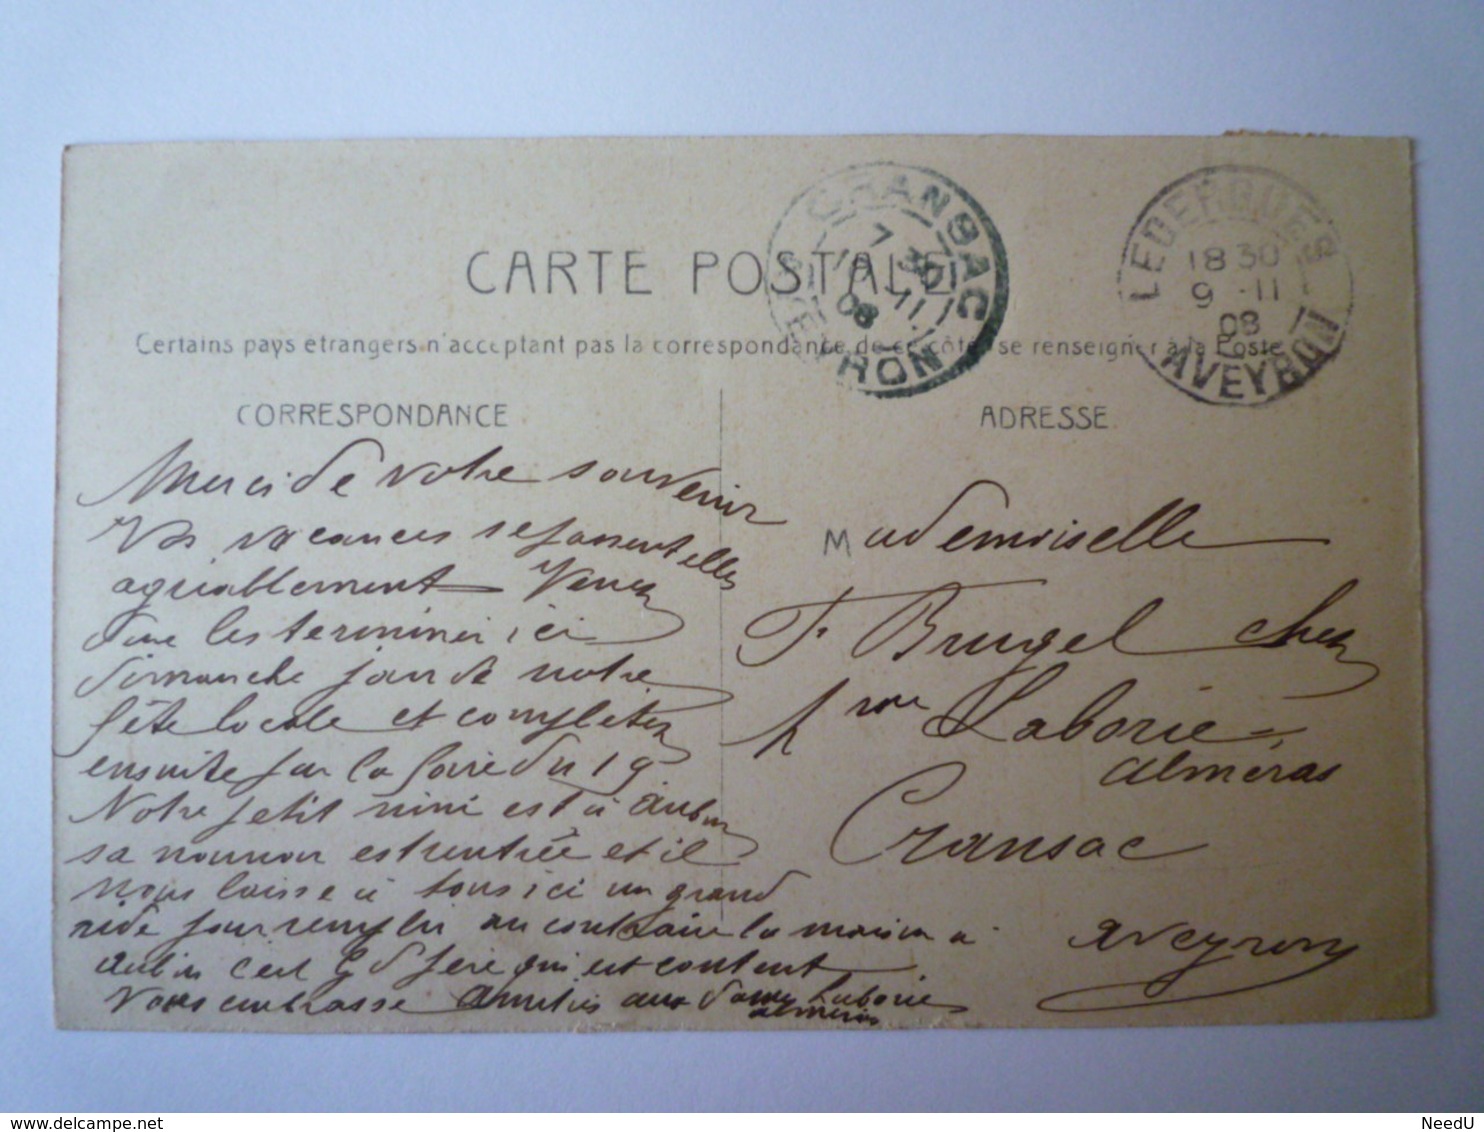 CRANSAC
7 30
11
08
AVEYRON
LEDERGUES
18 30
9 -11
08
AVEYRON
CARTE POSTALE
Certains pays étrangers n'acceptant pas la correspondance de ce côté, se renseigner à la Poste
CORRESPONDANCE
ADRESSE
Merci de votre souvenir
Vos vacances se passent elles
agréablement Venez
donc les terminer ici
dimanche jour de notre
fête locale et complétez
ensuite par la foire du 19
Notre petit nini est à Aubin
sa nounou est rentrée et il
nous laisse à tous ici un grand
vide pour remplir au contraire la maison à
Aubin c'est Gd père qui est content
Vous embrasse Amitiés aux dames Laborie
Alméras
Mademoiselle
F. Brugel chez
Mme Laborie-
Alméras
Cransac
Aveyron
NeedU